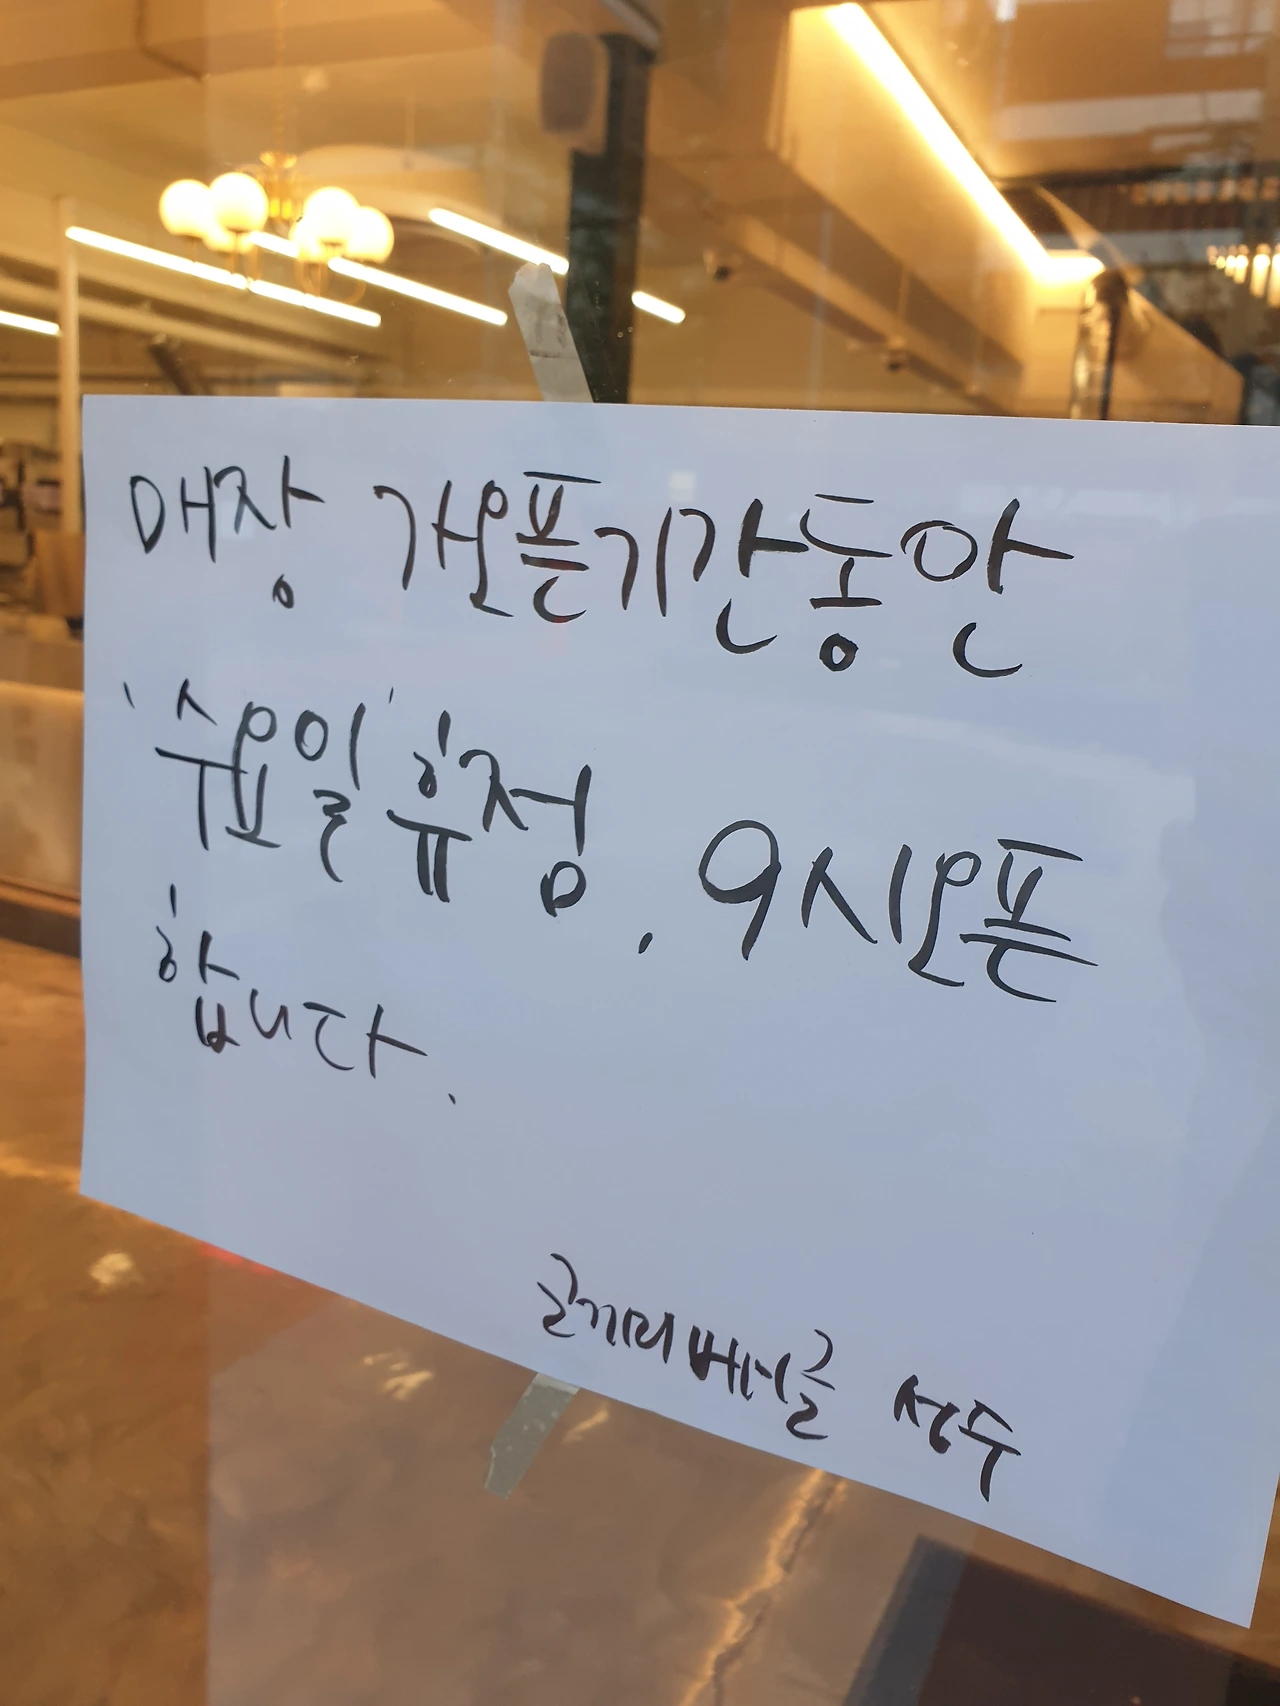 매장 가오픈기간동안
'수요일' 휴점, 9시오픈
합니다.
코끼리베이글 성수